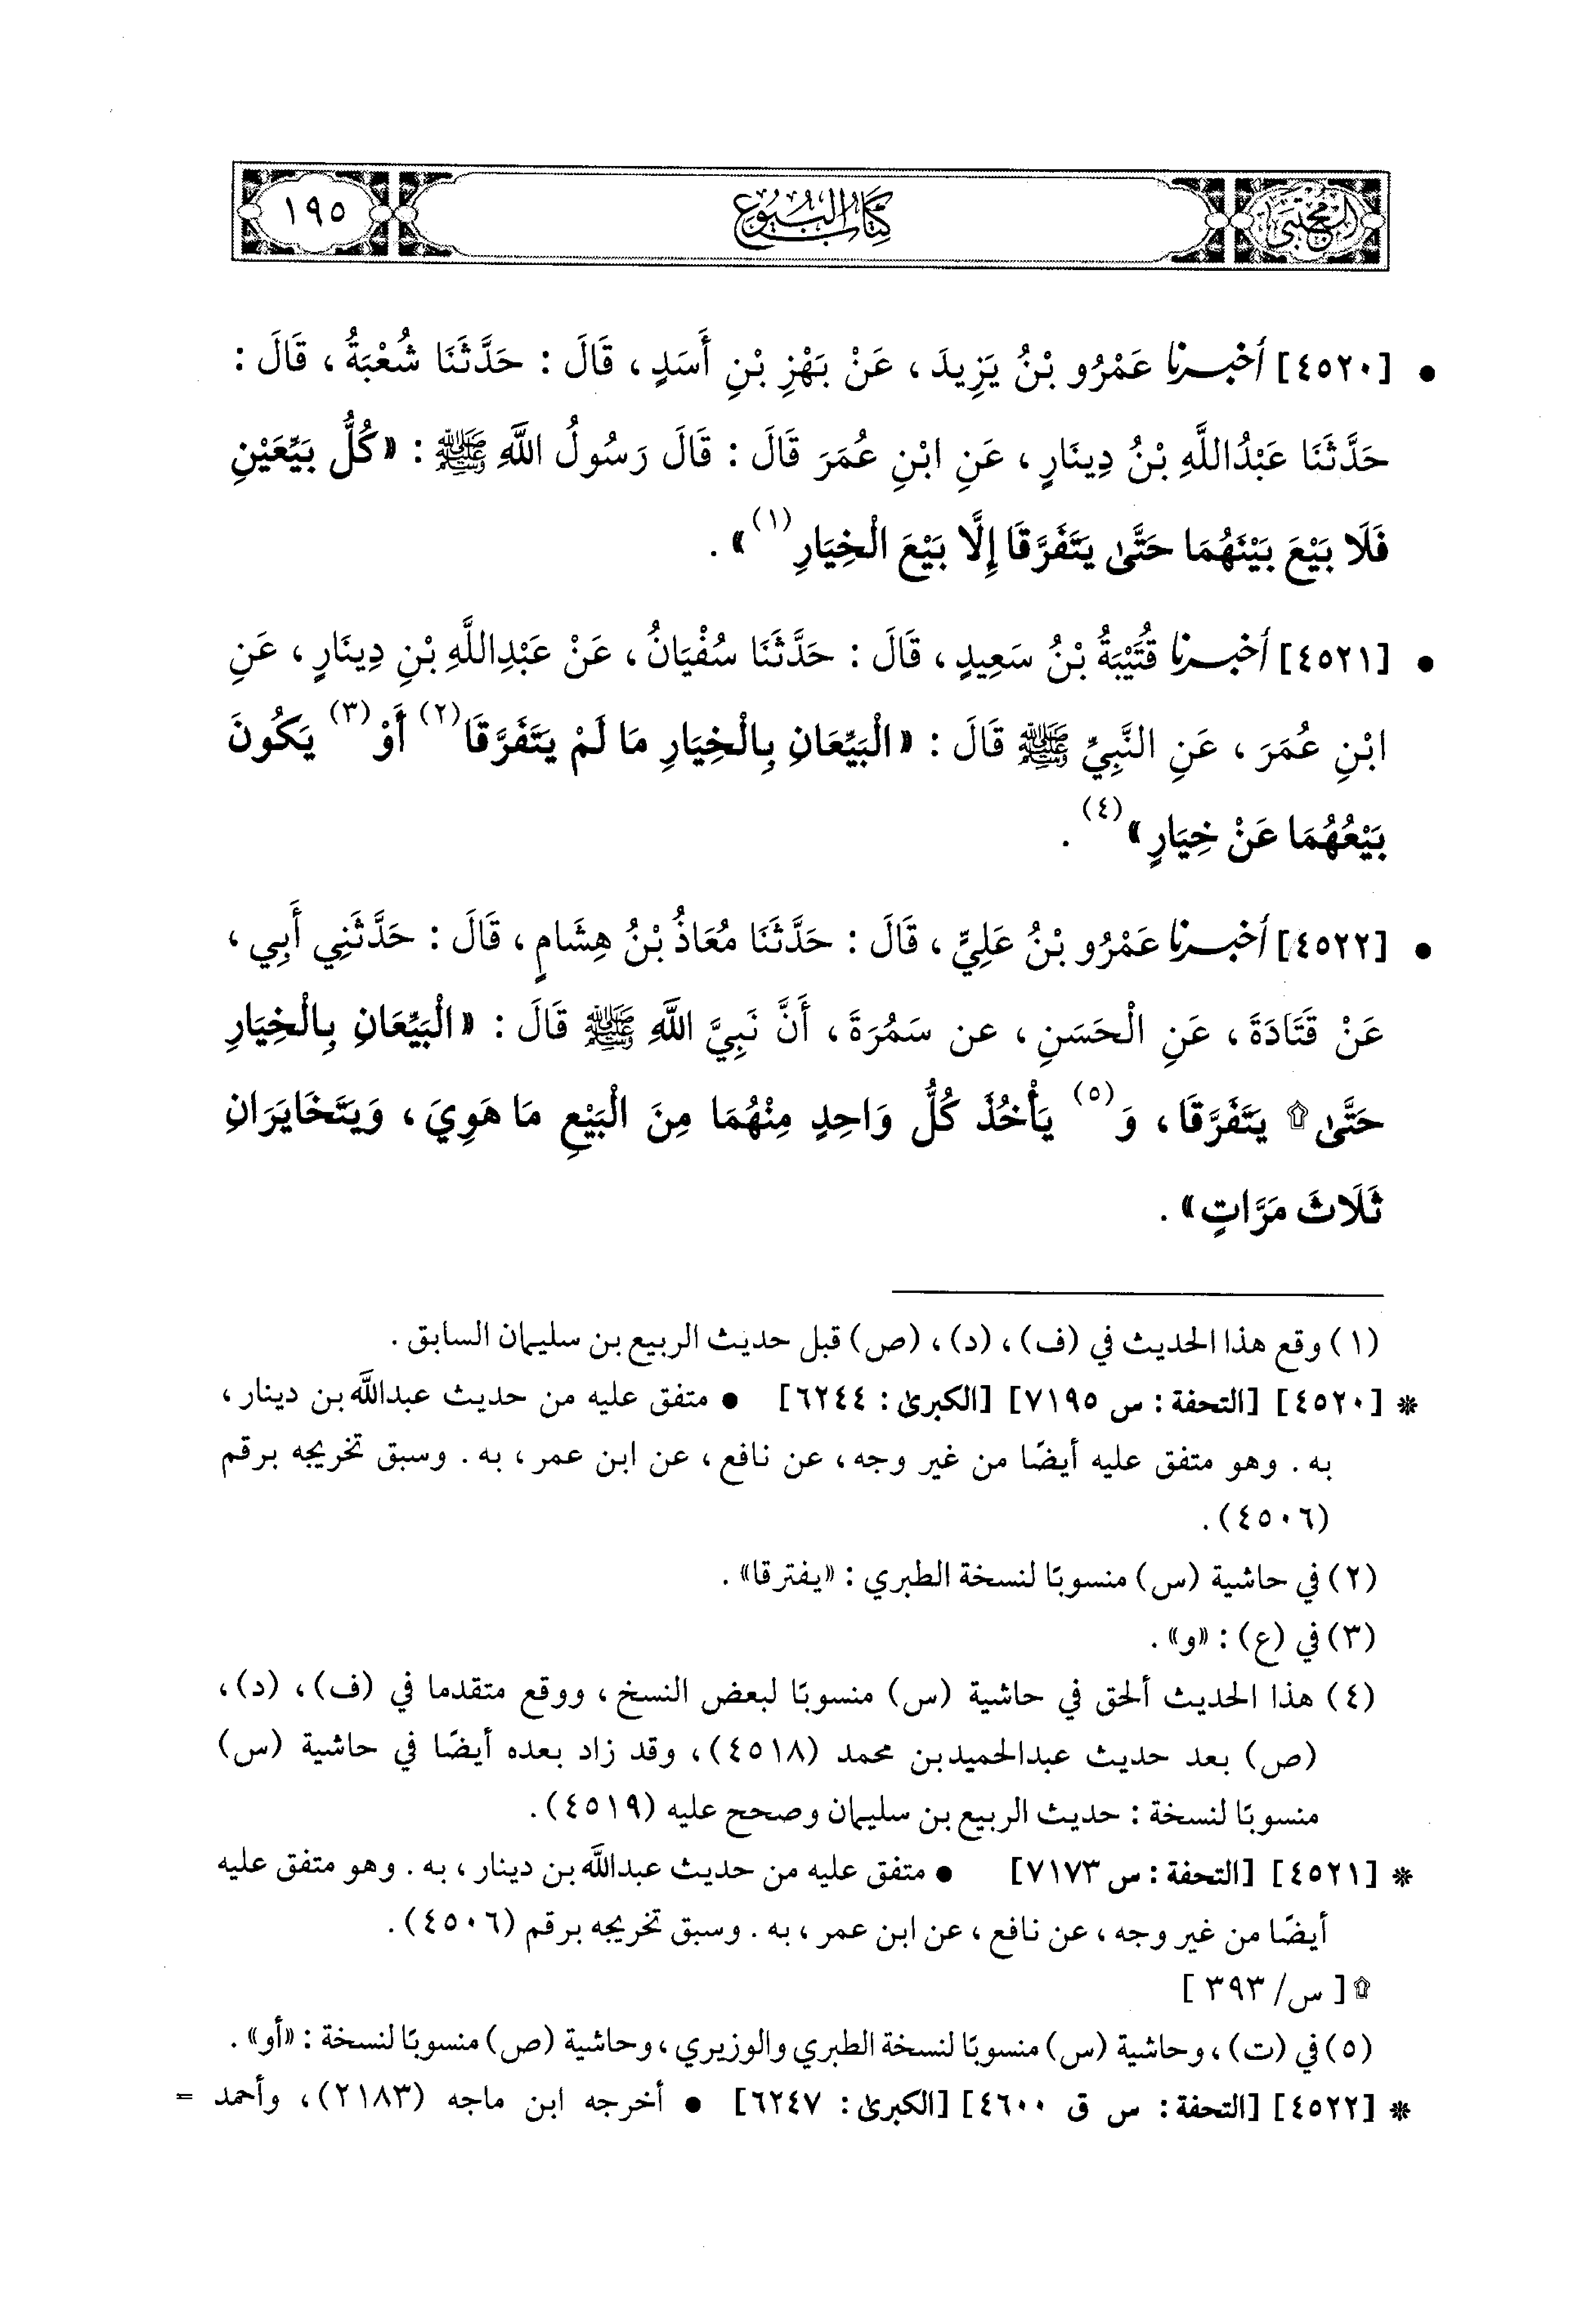 المجتبى
كتاب البيوع
١٩٥
• [٤٥٢٠] أخبرنا عَمْرُو بْنُ يَزِيدَ، عَنْ بَهْزِ بْنِ أَسَدٍ، قَالَ: حَدَّثَنَا شُعْبَةُ، قَالَ:
حَدَّثَنَا عَبْدُاللَّهِ بْنُ دِينَارٍ، عَنِ ابْنِ عُمَرَ قَالَ: قَالَ رَسُولُ اللَّهِ ﷺ: «كُلُّ بَيِّعَيْنِ
فَلَا بَيْعَ بَيْنَهُمَا حَتَّىٰ يَتَفَرَّقَا إِلَّا بَيْعَ الْخِيَارِ(١)».
• [٤٥٢١] أخبرنا قُتَيْبَةُ بْنُ سَعِيدٍ، قَالَ: حَدَّثَنَا سُفْيَانُ، عَنْ عَبْدِاللَّهِ بْنِ دِينَارٍ، عَنِ
ابْنِ عُمَرَ، عَنِ النَّبِيِّ ﷺ قَالَ: «الْبَيِّعَانِ بِالْخِيَارِ مَا لَمْ يَتَفَرَّقَا(٢) أَوْ(٣) يَكُونَ
بَيْعُهُمَا عَنْ خِيَارٍ»(٤).
• [٤٥٢٢] أخبرنا عَمْرُو بْنُ عَلِيٍّ، قَالَ: حَدَّثَنَا مُعَاذُ بْنُ هِشَامٍ، قَالَ: حَدَّثَنِي أَبِي،
عَنْ قَتَادَةَ، عَنِ الْحَسَنِ، عن سَمُرَةَ، أَنَّ نَبِيَّ اللَّهِ ﷺ قَالَ: «الْبَيِّعَانِ بِالْخِيَارِ
حَتَّىٰ ۩ يَتَفَرَّقَا، وَ(٥) يَأْخُذَ كُلُّ وَاحِدٍ مِنْهُمَا مِنَ الْبَيْعِ مَا هَوِيَ، وَيَتَخَايَرَانِ
ثَلَاثَ مَرَّاتٍ».
(١) وقع هذا الحديث في (ف)، (د)، (ص) قبل حديث الربيع بن سليمان السابق.
* [٤٥٢٠] [التحفة: س ٧١٩٥] [الكبرىٰ: ٦٢٤٤] • متفق عليه من حديث عبداللَّه بن دينار،
به. وهو متفق عليه أيضًا من غير وجه، عن نافع، عن ابن عمر، به. وسبق تخريجه برقم
(٤٥٠٦).
(٢) في حاشية (س) منسوبًا لنسخة الطبري: «يفترقا».
(٣) في (ع): «و».
(٤) هذا الحديث ألحق في حاشية (س) منسوبًا لبعض النسخ، ووقع متقدما في (ف)، (د)،
(ص) بعد حديث عبدالحميد بن محمد (٤٥١٨)، وقد زاد بعده أيضًا في حاشية (س)
منسوبًا لنسخة: حديث الربيع بن سليمان وصحح عليه (٤٥١٩).
* [٤٥٢١] [التحفة: س ٧١٧٣] • متفق عليه من حديث عبداللَّه بن دينار، به. وهو متفق عليه
أيضًا من غير وجه، عن نافع، عن ابن عمر، به. وسبق تخريجه برقم (٤٥٠٦).
۩ [س/ ٣٩٣]
(٥) في (ت)، وحاشية (س) منسوبًا لنسخة الطبري والوزيري، وحاشية (ص) منسوبًا لنسخة: «أو».
* [٤٥٢٢] [التحفة: س ق ٤٦٠٠] [الكبرىٰ: ٦٢٤٧] • أخرجه ابن ماجه (٢١٨٣)، وأحمد =